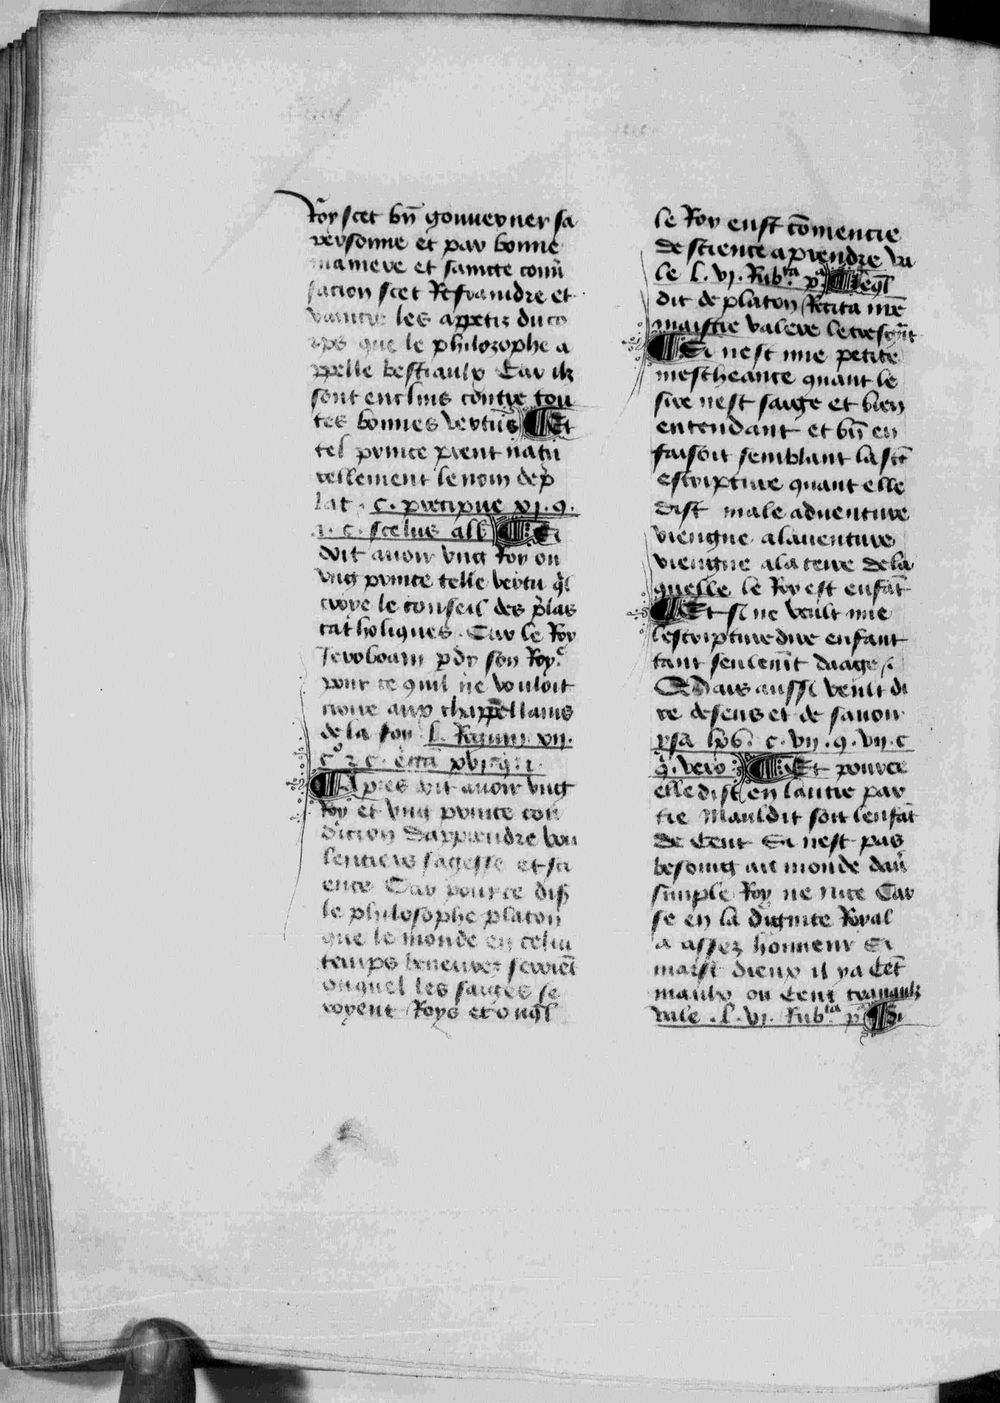 Roy scet bn̄ gouuerner sa
personne et par bonne
maniere et saincte conu̅
sacion scet Refraindre et
vaincre les appetiz du co
rps que le philozophe a
ppelle bestiaulx Car ilz
sont enclins contre tou
tes bonnes vertus ¶ Et
tel prince prent natu
rellement le nom de p̄
lat . c. precipue xj . q.
. c. scelus alb ¶ Si
doit auoir vng Roy ou
vng prince telle vertu q̄l
croye le conseil des p̄las
catholiques . Car le Roy
Jeroboam pdy son Roye
pour ce quil ne vouloit
croire aux chappellains
de la foy l. Regum xii.
¶ Apres doit auoir vng
Roy et vng prince con
dicion dapprendre vou
lentiers sagesse et sci
ence Car pour ce dist
le philosophe platon
que le monde en celui
temps beneurez seroiēt
ouquel les saiges se
royent Roys et ouq̄l
le Roy eust cōmencie
de science aprendre va
le l. vj. Rub.ca p.a ¶ leq̄l
dit de platon Recita mē
maistre valere letresgn̄t
¶ Si nest mie petite
mescheance quant le
sire nest saige et bien
entendant et bn̄ en
faisoit semblant la sc̄t
escripture quant elle
dist male aduenture
viengne alauenture
viengne ala terre dela
quelle le Roy est enfāt
¶ Et si ne veult mie
lescripture dire enfant
tant seulemt daage .
Mais aussi veult di
re de sens et de sauoir
ysa . c. vij . q. vij c
q̄. vero ¶ Et pource
elle dist en lautre par
tie Mauldit soit lenfāt
de Cent Si nest pas
besoing au monde dau̅
simple Roy ne nice Car
se en la dignite Royal
a assez honneur Si
maist dieux il ya Cēt
maulx ou Cent trauaulz
vale . l. vj. Rub.ca p.a ¶ Si